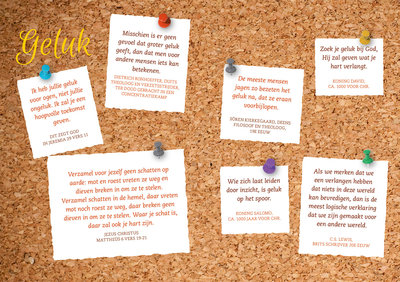 Geluk
Ik heb jullie geluk
voor ogen, niet jullie
ongeluk. Ik zal je een
hoopvolle toekomst
geven.
DIT ZEGT GOD
IN JEREMIA 29 VERS 11
Misschien is er geen
gevoel dat groter geluk
geeft, dan dat men voor
andere mensen iets kan
betekenen.
DIETRICH BONHOEFFER, DUITS
THEOLOOG EN VERZETSSTRIJDER,
TER DOOD GEBRACHT IN EEN
CONCENTRATIEKAMP
De meeste mensen
jagen zo bezeten het
geluk na, dat ze eraan
voorbijlopen.
SÖREN KIERKEGAARD, DEENS
FILOSOOF EN THEOLOOG,
19E EEUW
Zoek je geluk bij God,
Hij zal geven wat je
hart verlangt.
KONING DAVID,
CA. 1000 VOOR CHR.
Verzamel voor jezelf geen schatten op
aarde: mot en roest vreten ze weg en
dieven breken in om ze te stelen.
Verzamel schatten in de hemel, daar vreten
mot noch roest ze weg, daar breken geen
dieven in om ze te stelen. Waar je schat is,
daar zal ook je hart zijn.
JEZUS CHRISTUS
MATTHEÜS 6 VERS 19-21
Wie zich laat leiden
door inzicht, is geluk
op het spoor.
KONING SALOMO,
CA. 1000 JAAR VOOR CHR.
Als we merken dat
we een verlangen hebben
dat niets in deze wereld
kan bevredigen, dan is de
meest logische verklaring
dat we zijn gemaakt voor
een andere wereld.
C.S. LEWIS,
BRITS SCHRIJVER 20E EEUW